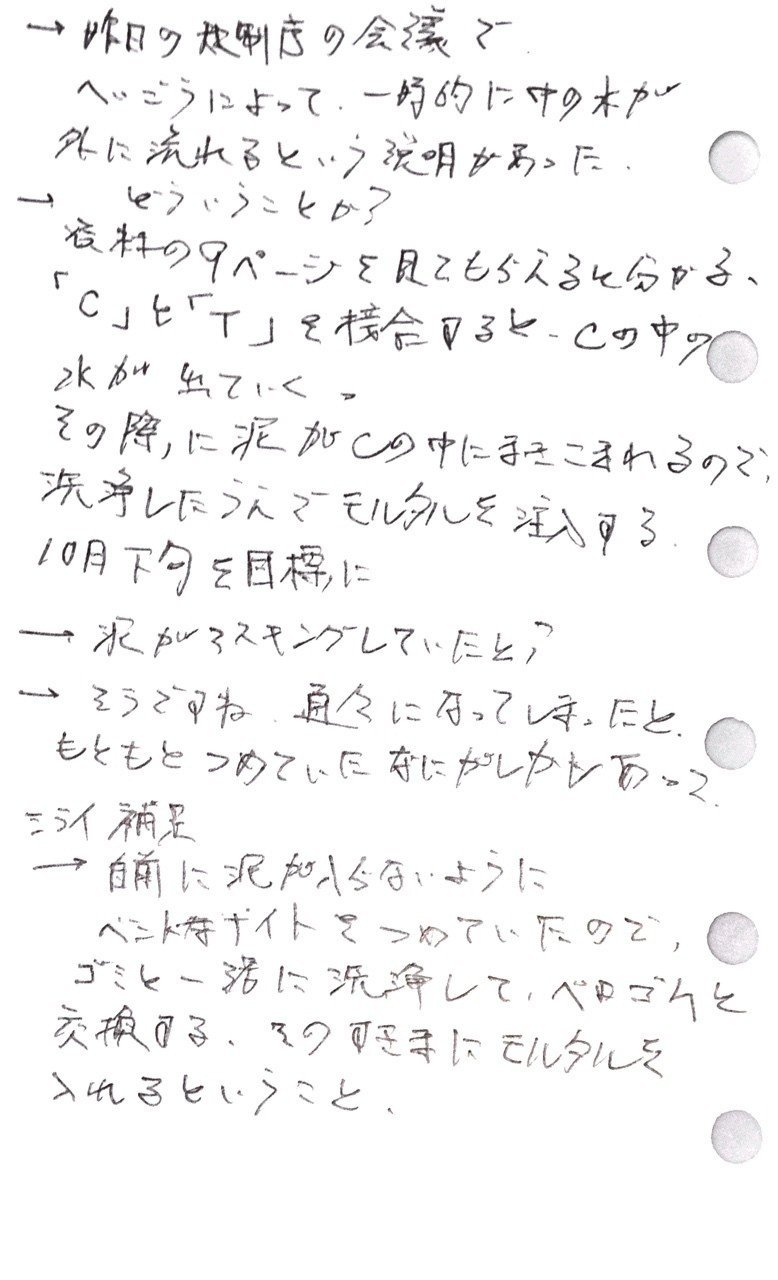 → 昨日の規制庁の会議で
へいごうによって、一時的に中の水が
外に流れるという説明があった。
→ どういうことか?
資料の9ページを見てもらえると分かる、
「C」と「T」を接合すると、Cの中の
水が出ていく。
その際に泥がCの中にまきこまれるので、
洗浄したうえでモルタルを注入する。
10月下旬を目標に
→ 泥がマスキングしていたと?
→ そうですね、 になってしまったと。
もともとつめていたなにがしかもあって
ミライ補足
→ 自前に泥が入らないように
ベントナイトをつめていたので、
ゴミと一緒に洗浄して、ベロゴムと
交換する、そのすきまにモルタルを
入れるということ、